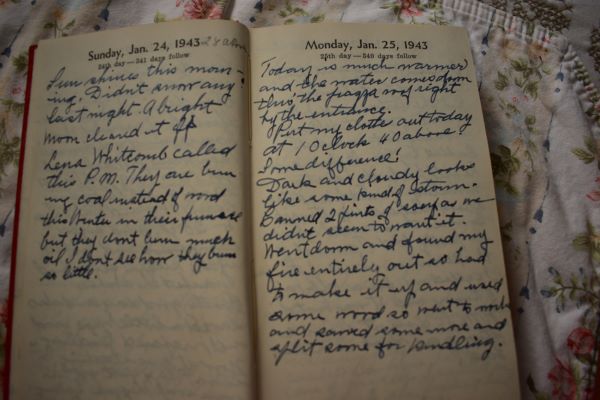 Sunday, Jan. 24, 1943 28 above
24th day—341 days follow
Sun shines this morn-
ing. Didn't snow any
last night. A bright
moon cleared it off
Lena Whitcomb called
this P.M. They are burn
ing coal instead of wood
this Winter in their furnace
but they dont burn much
oil I dont see how they burn
so little.
Monday, Jan. 25, 1943
25th day—340 days follow
Today is much warmer
and the water comes down
thru' the piazza roof right
by the entrance.
Put my clothes out today
at 1 O'clock 40 above.
Some difference!
Dark and cloudy looks
like some kind of storm.
Canned 2 pints of soup as we
didn't seem to want it.
Went down and found my
fire entirely out so had
to make it up and used
some wood so went to work
and sawed some more and
split some for kindling.